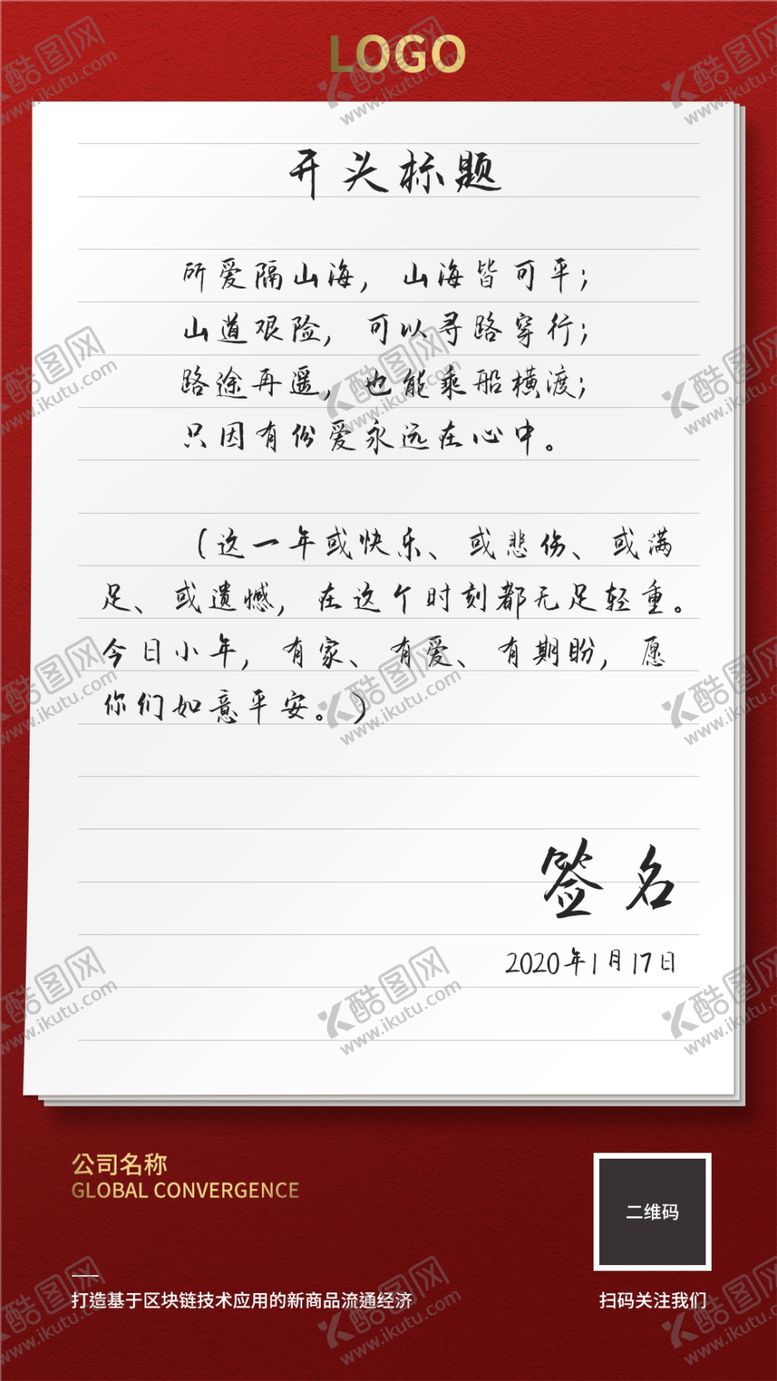 LOGO
开头标题
所爱隔山海，山海皆可平；
山道艰险，可以寻路穿行；
路途再遥，也能乘船横渡；
只因有份爱永远在心中。
（这一年或快乐、或悲伤、或满
足、或遗憾，在这个时刻都无足轻重。
今日小年，有家、有爱、有期盼，愿
你们如意平安。）
签名
2020年1月17日
公司名称
GLOBAL CONVERGENCE
二维码
打造基于区块链技术应用的新商品流通经济
扫码关注我们
酷图网
www.ikutu.com